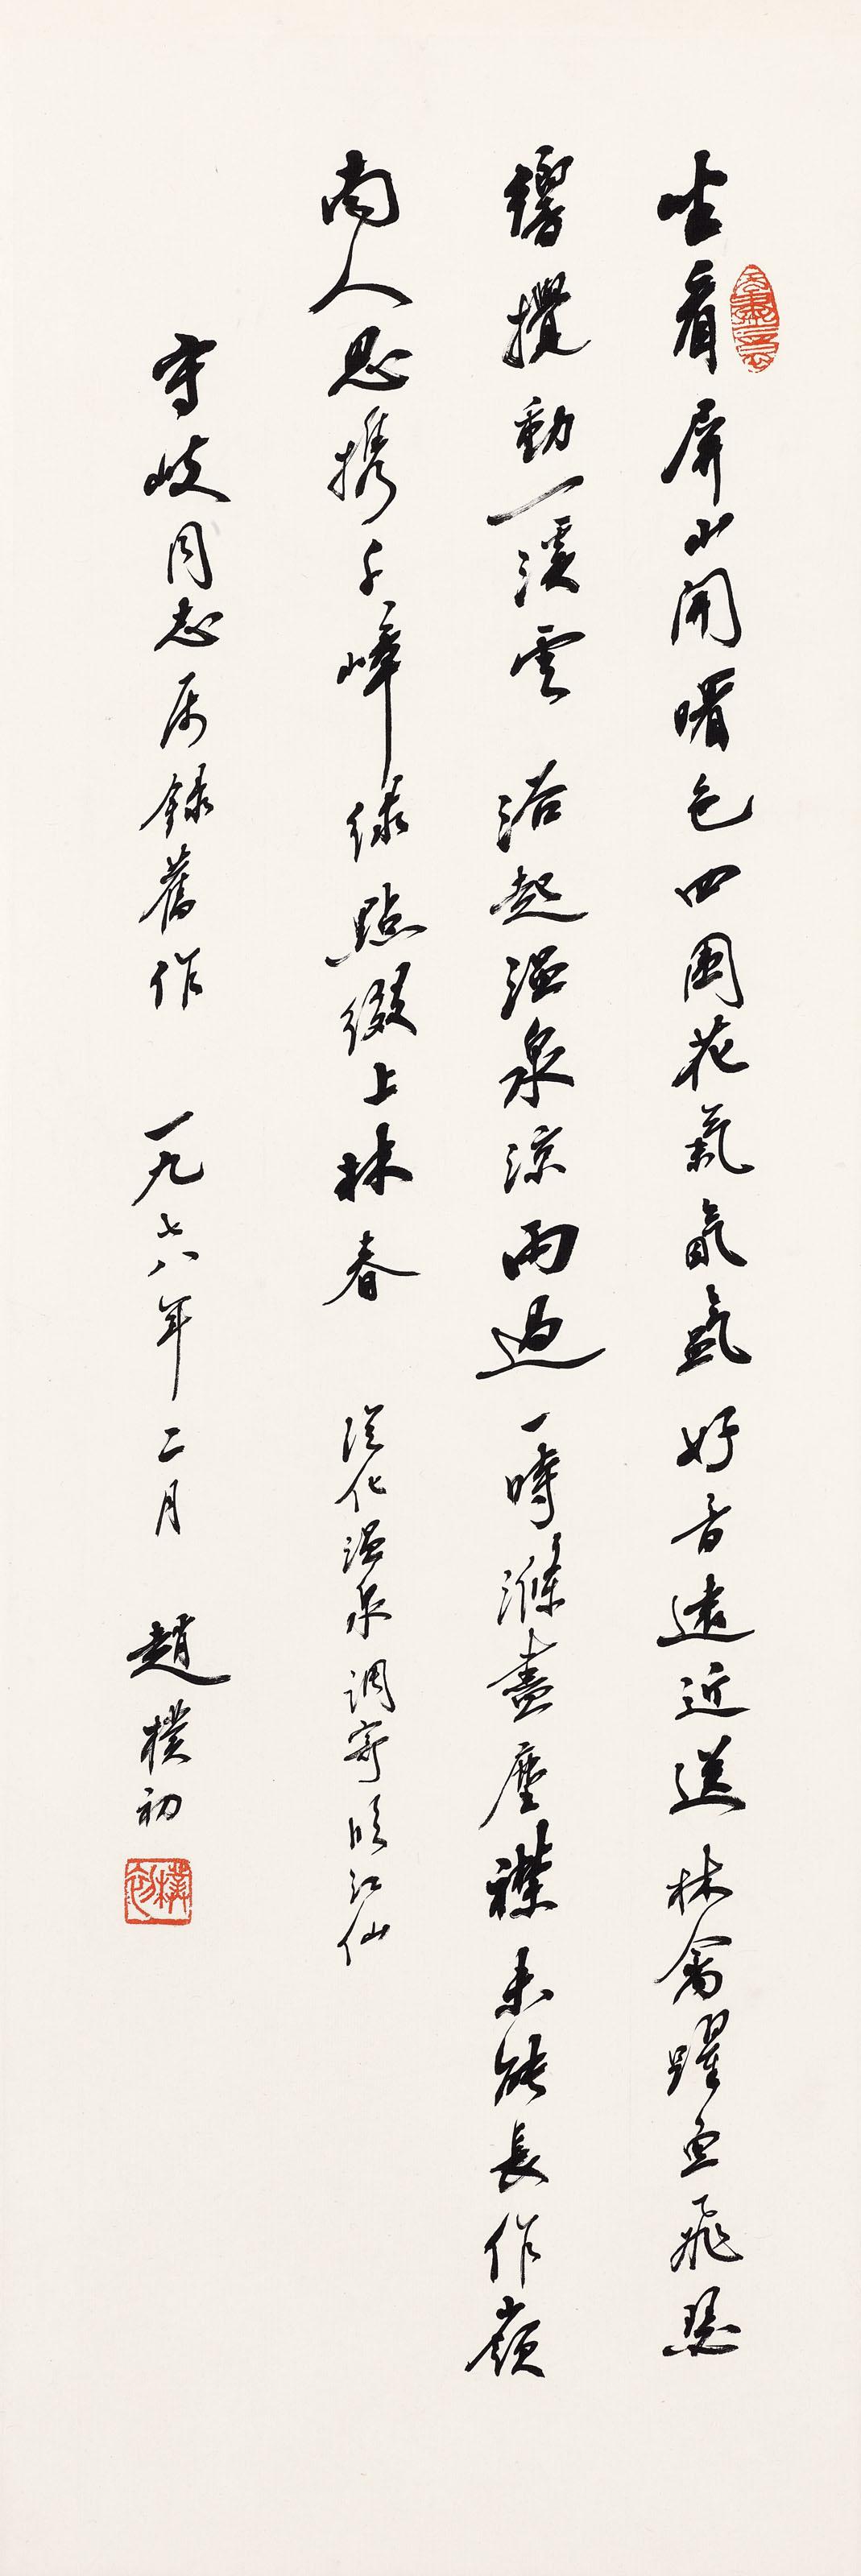 坐看屏山開曙色四圍花氣氤氳好音遠近送林禽躍魚飛瑟
響攪動一溪雲 浴起溫泉涼雨過一時滌盡塵襟未能長作嶺
南人思携千嶂綠點綴上林春 從化溫泉調寄臨江仙
守岐同志属錄舊作 一九七八年二月 趙樸初
樸初